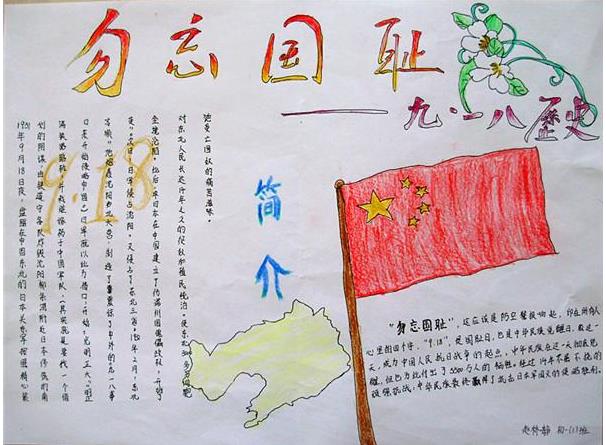 勿忘国耻
九·一八歷史
9.18
简介
1931年9月18日夜，盘踞在中国东北的日本关东军按照精心策
划的阴谋，由铁道守备队炸毁沈阳柳条湖附近日本修筑的南
满铁路路轨，并栽赃嫁祸于中国军队。（其实就是要找一个借
口来开始侵略中国。）日军就以此为借口，开始“光明正大”“明正
言顺”地炮轰沈阳北大营，制造了震惊了中外的九一八事
变。次日，日军侵占沈阳，又侵占了东北三省。1932年2月，东北
全境沦陷。此后，日本在中国建立了伪满州国傀儡政权，开始了
对东北人民长达14年之久的奴役和殖民统治，使东北3000多万同胞
饱受亡国奴的痛苦滋味。
“勿忘国耻”，这应该是防空警报响起，印在所有人
心里的四个字。“9.18”，是国耻日，也是中华民族觉醒日。这一
天，成为中国人民抗日战争的起点，中华民族在这一天彻底觉
醒，但也为此付出了3500万人的牺牲。经过14年不屈不挠的
顽强抗战，中华民族最终取得了抗击日本军国主义的侵略胜利。
初一(1)班